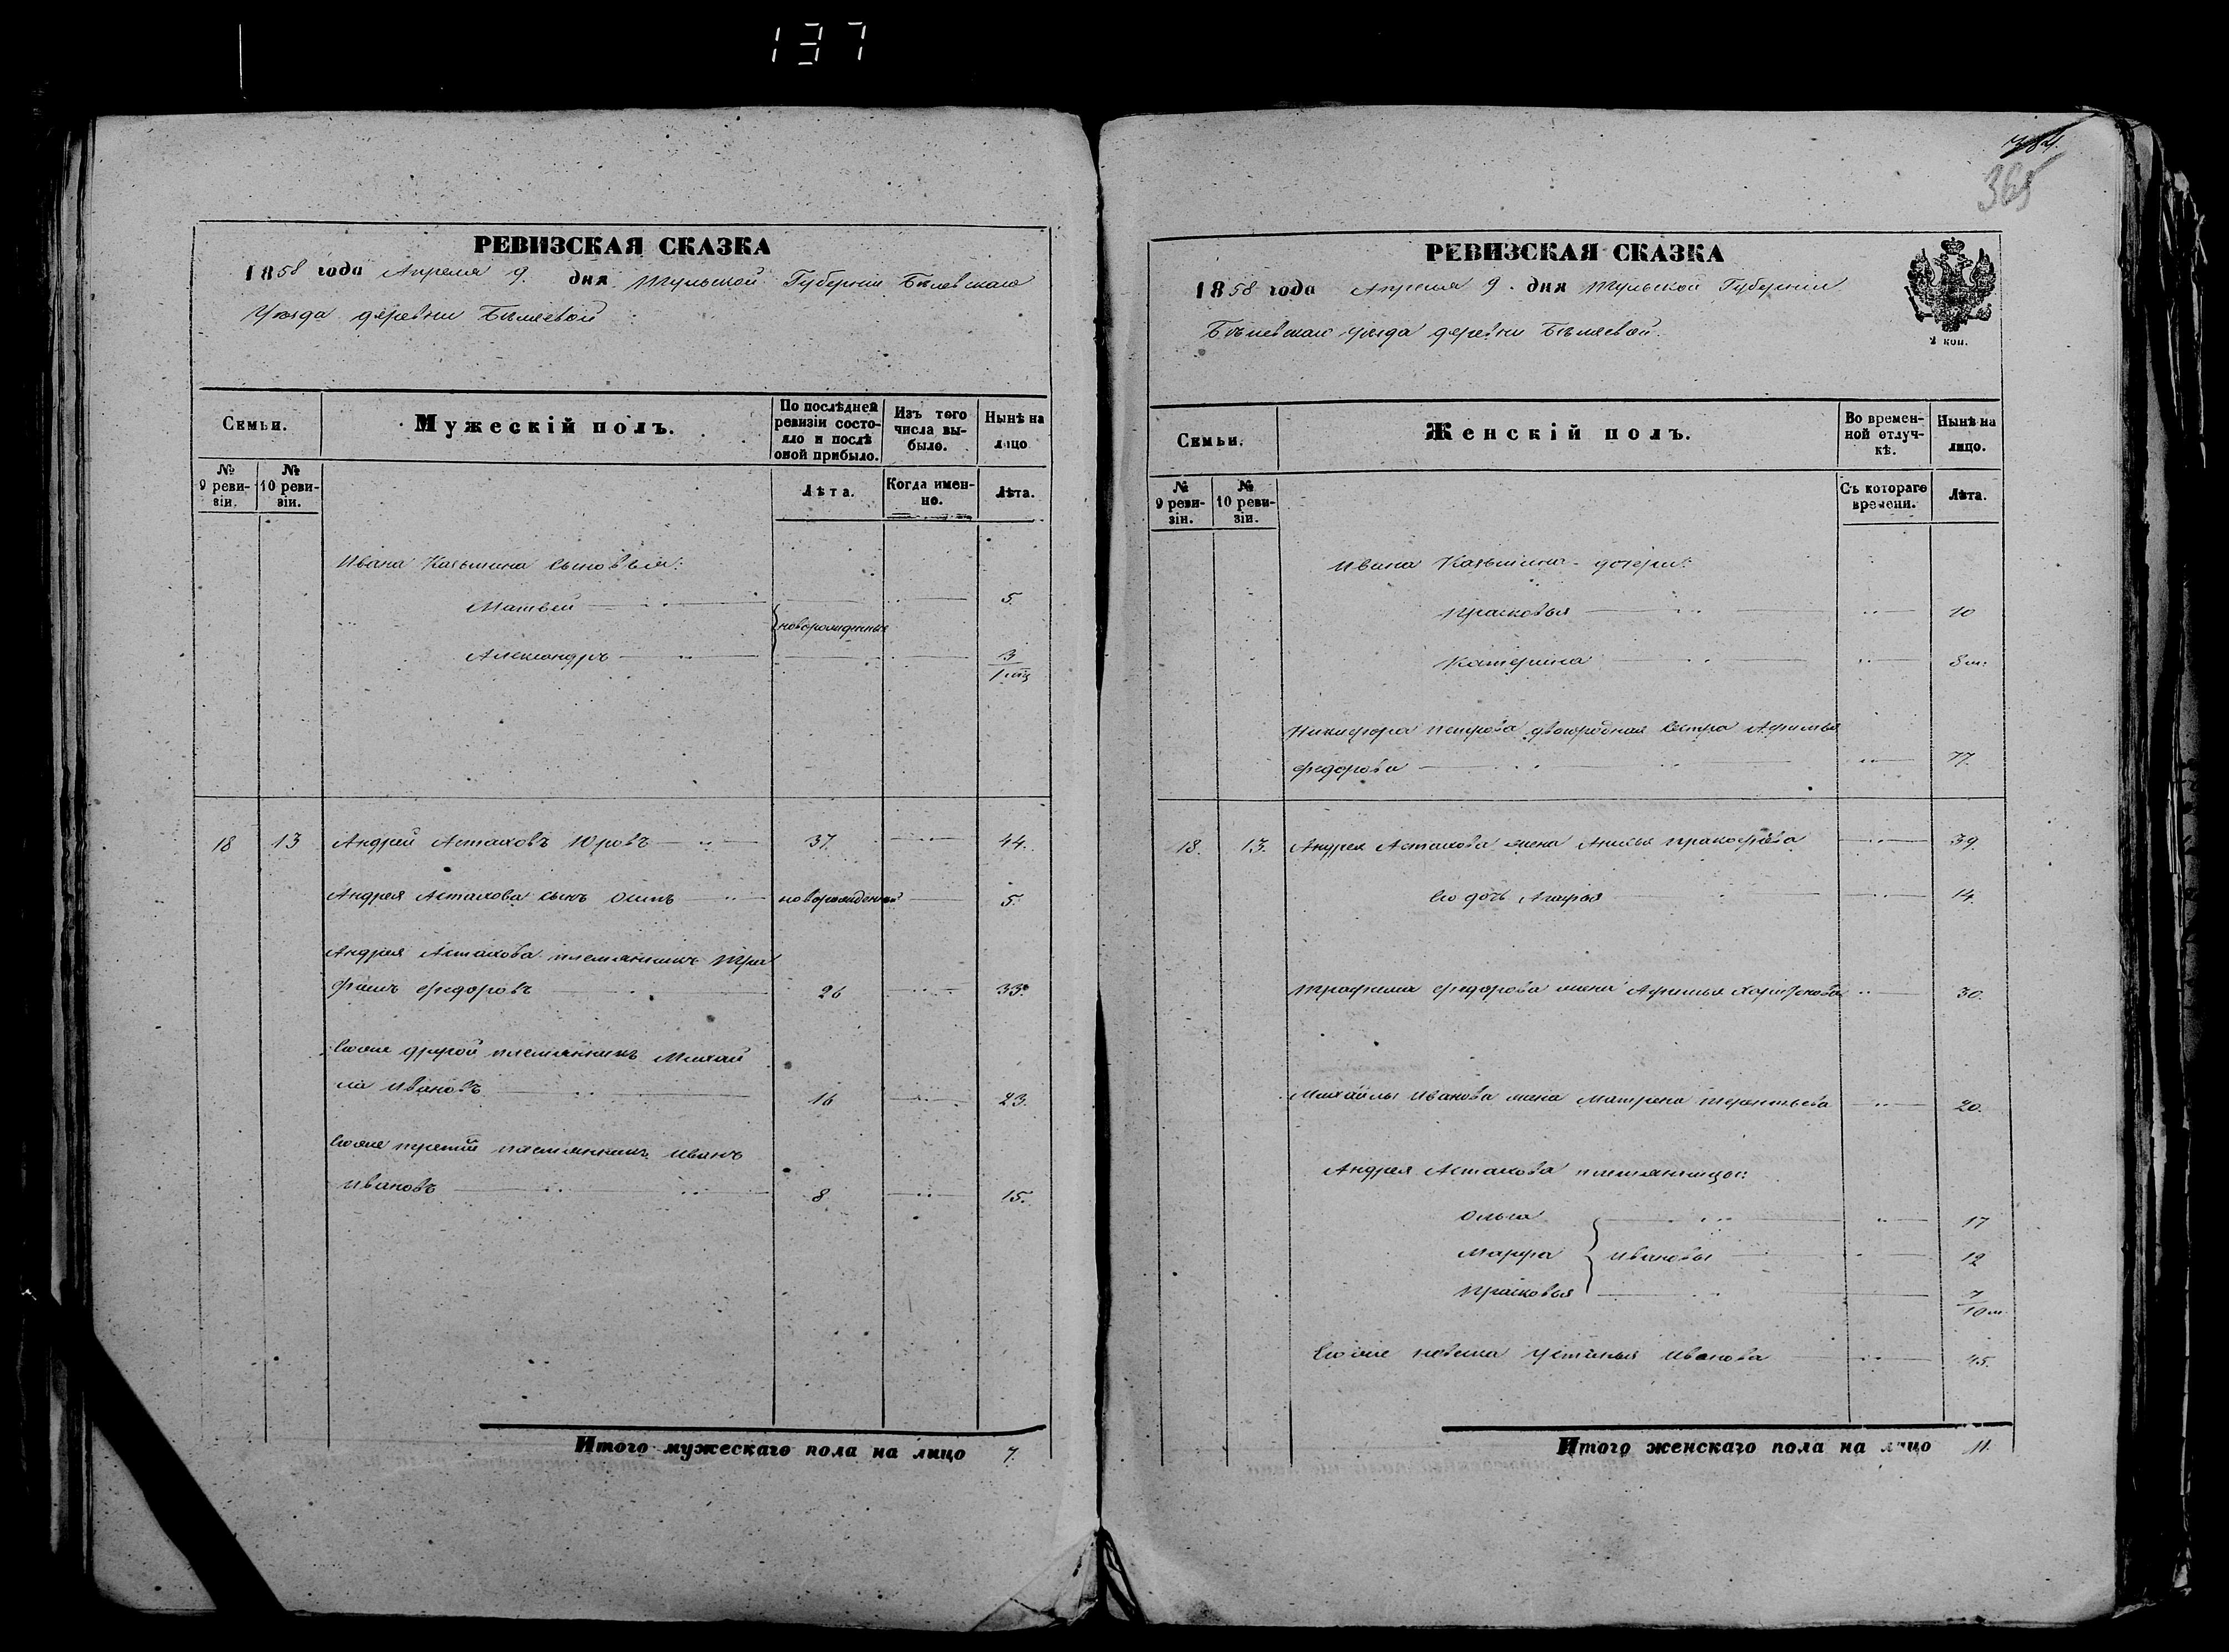 137
384.
365
РЕВИЗСКАЯ СКАЗКА
1858 года Апреля 9. дня Тульской Губернии Бѣлевскаго
Уѣзда деревни Бѣляевой
Семьи.
Мужескій полъ.
По послѣдней ревизіи состояло и послѣ оной прибыло.
Изъ того числа выбыло.
Нынѣ на лицо
№ 9 ревизіи.
№ 10 ревизіи.
Лѣта.
Когда именно.
Лѣта.
Ивана Козьмина сыновья:
Матвей 5.
новорожденные
Александръ 3/1 мц
18 13 Андрей Астаховъ Юровъ 37. 44.
Андрея Астахова сынъ Осипъ новорожденный 5.
Андрея Астахова племянникъ Тро
фимъ Федоровъ 26 33.
Его же другой племянникъ Михай
ла Ивановъ 16 23.
Его же третий племянникъ Иванъ
Ивановъ 8 15.
Итого мужескаго пола на лицо 7.
РЕВИЗСКАЯ СКАЗКА
1858 года Апреля 9. дня Тульской Губернии
Бѣлевскаго уѣзда деревни Бѣляевой.
2 коп.
Семьи.
Женскій полъ.
Во временной отлучкѣ.
Нынѣ на лицо.
№ 9 ревизіи.
№ 10 ревизіи.
Съ котораго времени.
Лѣта.
Ивана Козьмина дочери:
Прасковья 10
Катерина 8 м:
Никифора Петрова двоюродная сестра Афимья
Федорова 77.
18. 13. Андрея Астахова жена Анисья Пракофьева 39.
Его дочь Агафья 14.
Трофима Федорова жена Афимья Харитонова 30.
Михайлы Иванова жена Матрена Терентьева 20.
Андрея Астахова племянницы:
Ольга 17
Марфа Ивановы 12
Прасковья 7/10 м.
Его же невестка Устинья Иванова 45.
Итого женскаго пола на лицо 11.